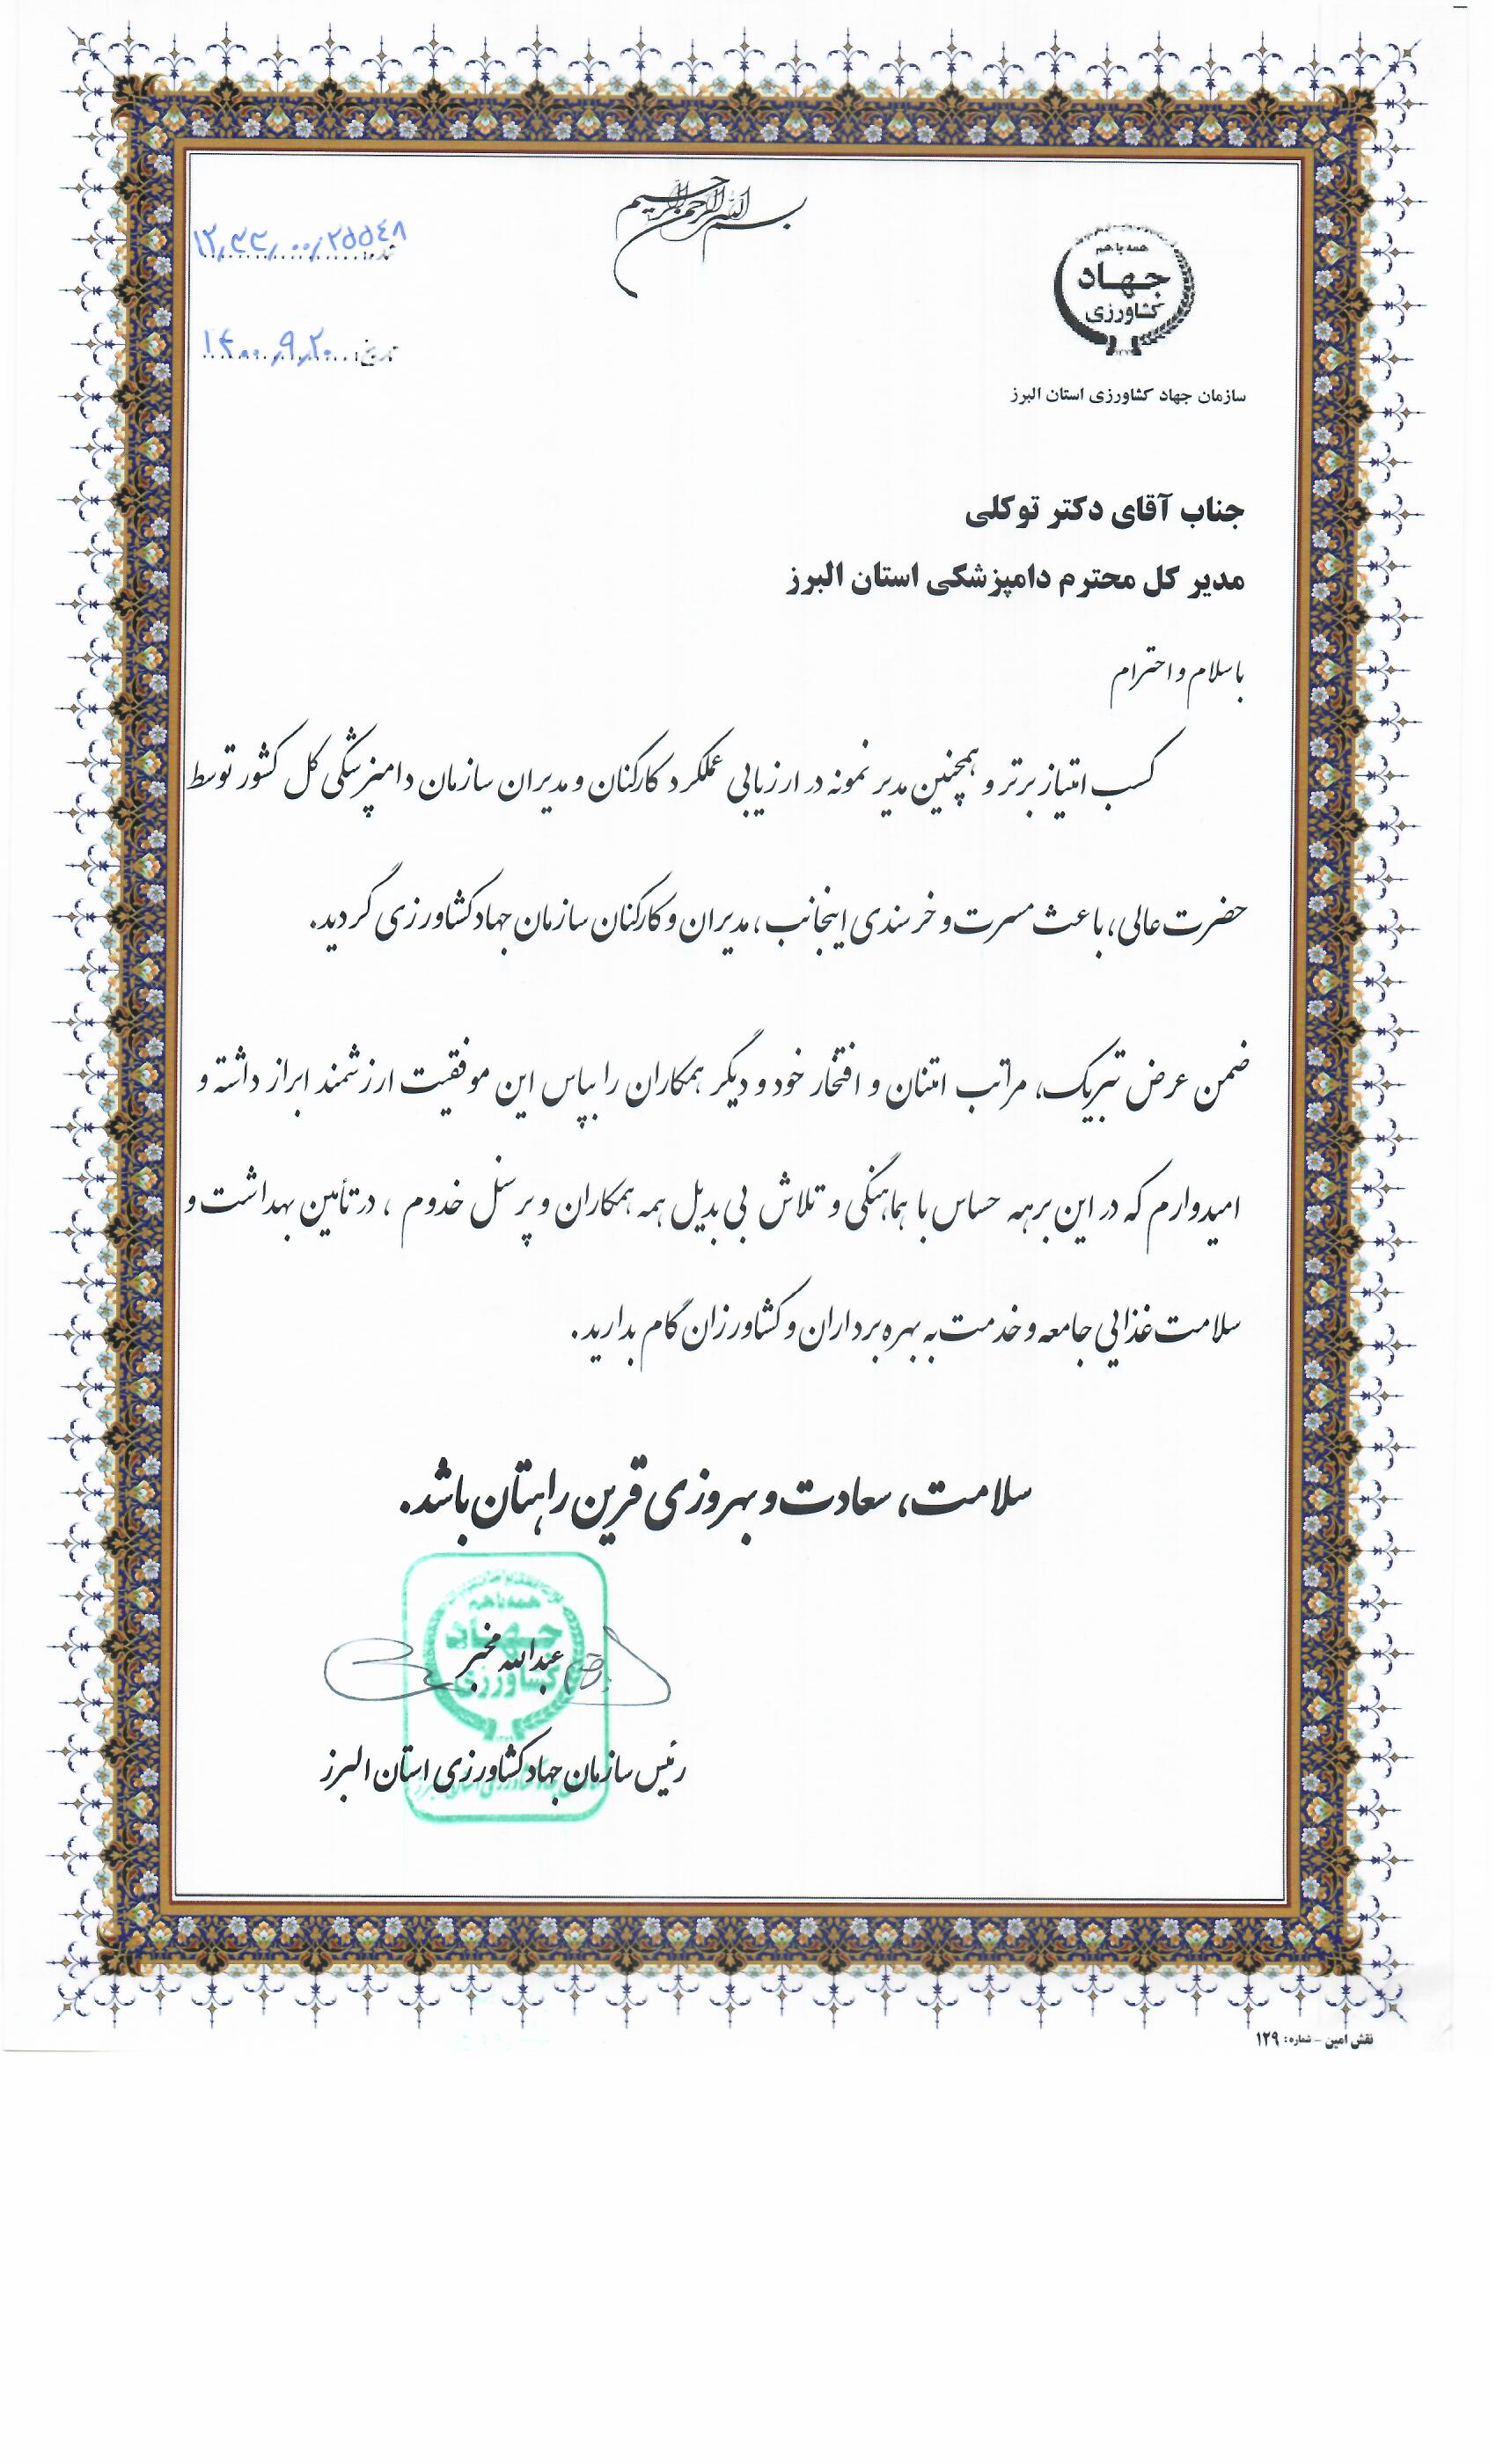 بسم الله الرحمن الرحیم
همه با هم
جهاد
کشاورزی
سازمان جهاد کشاورزی استان البرز
۱۲/۳۳/۰۰/۲۵۵۴۸
تاریخ: ۱۴۰۰/۹/۲۰
جناب آقای دکتر توکلی
مدیر کل محترم دامپزشکی استان البرز
با سلام و احترام
کسب امتیاز برتر و همچنین مدیر نمونه در ارزیابی عملکرد کارکنان و مدیران سازمان دامپزشکی کل کشور توسط
حضرت عالی، باعث مسرت و خرسندی اینجانب، مدیران و کارکنان سازمان جهاد کشاورزی گردید.
ضمن عرض تبریک، مراتب امتنان و افتخار خود و دیگر همکاران را بپاس این موفقیت ارزشمند ابراز داشته و
امیدوارم که در این برهه حساس با هماهنگی و تلاش بی بدیل همه همکاران و پرسنل خدوم، در تأمین بهداشت و
سلامت غذایی جامعه و خدمت به بهره برداران و کشاورزان گام بدارید.
سلامت، سعادت و بهروزی قرین راهتان باشد.
همه با هم
جهاد
کشاورزی
عبدالله مخبر
رئیس سازمان جهاد کشاورزی استان البرز
نقش امین - شماره: ۱۲۹